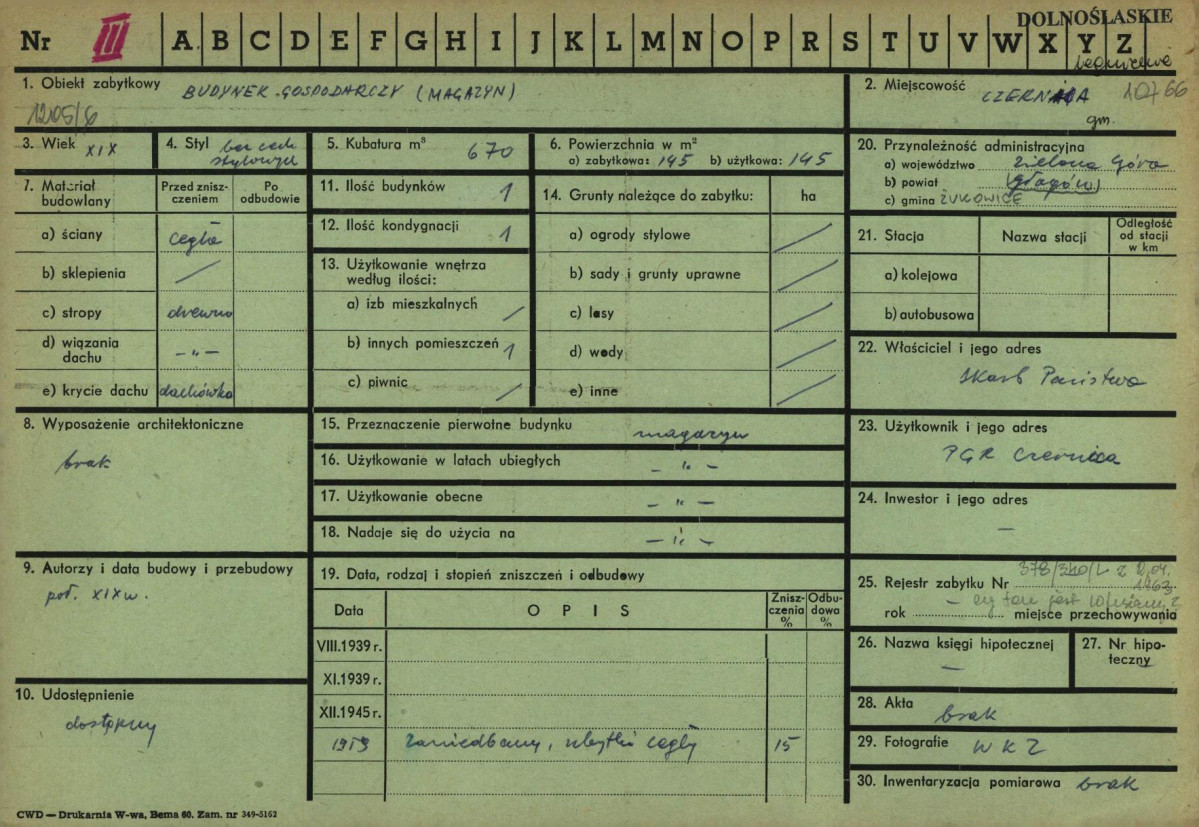 DOLNOŚLASKIE
Nr III A B C D E F G H I J K L M N O P R S T U V W X Y Z
1. Obiekt zabytkowy BUDYNEK GOSPODARCZY (MAGAZYN)
1205/6
2. Miejscowość CZERNICA 10766
gm.
3. Wiek XIX
4. Styl bez cech
stylowych
5. Kubatura m³ 670
6. Powierzchnia w m²
a) zabytkowa: 145 b) użytkowa: 145
20. Przynależność administracyjna
a) województwo Zielona Góra
b) powiat (Głogów)
c) gmina ŻUKOWICE
7. Materiał budowlany
Przed zniszczeniem
Po odbudowie
a) ściany cegła
b) sklepienia /
c) stropy drewno
d) wiązania dachu -„-
e) krycie dachu dachówka
11. Ilość budynków 1
12. Ilość kondygnacji 1
13. Użytkowanie wnętrza
według ilości:
a) izb mieszkalnych /
b) innych pomieszczeń 1
c) piwnic /
14. Grunty należące do zabytku: ha
a) ogrody stylowe /
b) sady i grunty uprawne /
c) lasy /
d) wody /
e) inne /
21. Stacja Nazwa stacji Odległość
od stacji
w km
a) kolejowa
b) autobusowa
22. Właściciel i jego adres
Skarb Państwa
8. Wyposażenie architektoniczne
brak
15. Przeznaczenie pierwotne budynku magazyn
16. Użytkowanie w latach ubiegłych - „ -
17. Użytkowanie obecne - „ -
18. Nadaje się do użycia na - „ -
23. Użytkownik i jego adres
PGR Czernica
24. Inwestor i jego adres
—
9. Autorzy i data budowy i przebudowy
poł. XIX w.
19. Data, rodzaj i stopień zniszczeń i odbudowy
Data OPIS Znisz-
czenia
% Odbu-
dowa
%
VIII.1939 r.
XI.1939 r.
XII.1945 r.
1959 zaniedbany, ubytki cegły 15
25. Rejestr zabytku Nr 378/340/L z 2.04.
1963
rok miejsce przechowywania
26. Nazwa księgi hipotecznej
—
27. Nr hipo-
teczny
10. Udostępnienie
dostępny
28. Akta brak
29. Fotografie WKZ
30. Inwentaryzacja pomiarowa brak
CWD — Drukarnia W-wa, Bema 60. Zam. nr 349-5162